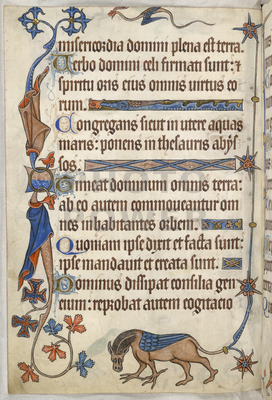 misericordia domini plena est terra.
Verbo domini celi firmati sunt: &
spiritu oris eius omnis virtus eo
rum.
Congregans sicut in utre aquas
maris: ponens in thesauris abys
sos.
Timeat dominum omnis terra:
ab eo autem commoveantur om
nes inhabitantes orbem.
Quoniam ipse dixit et facta sunt:
ipse mandavit et creata sunt.
Dominus dissipat consilia gen
tium: reprobat autem cogitacio